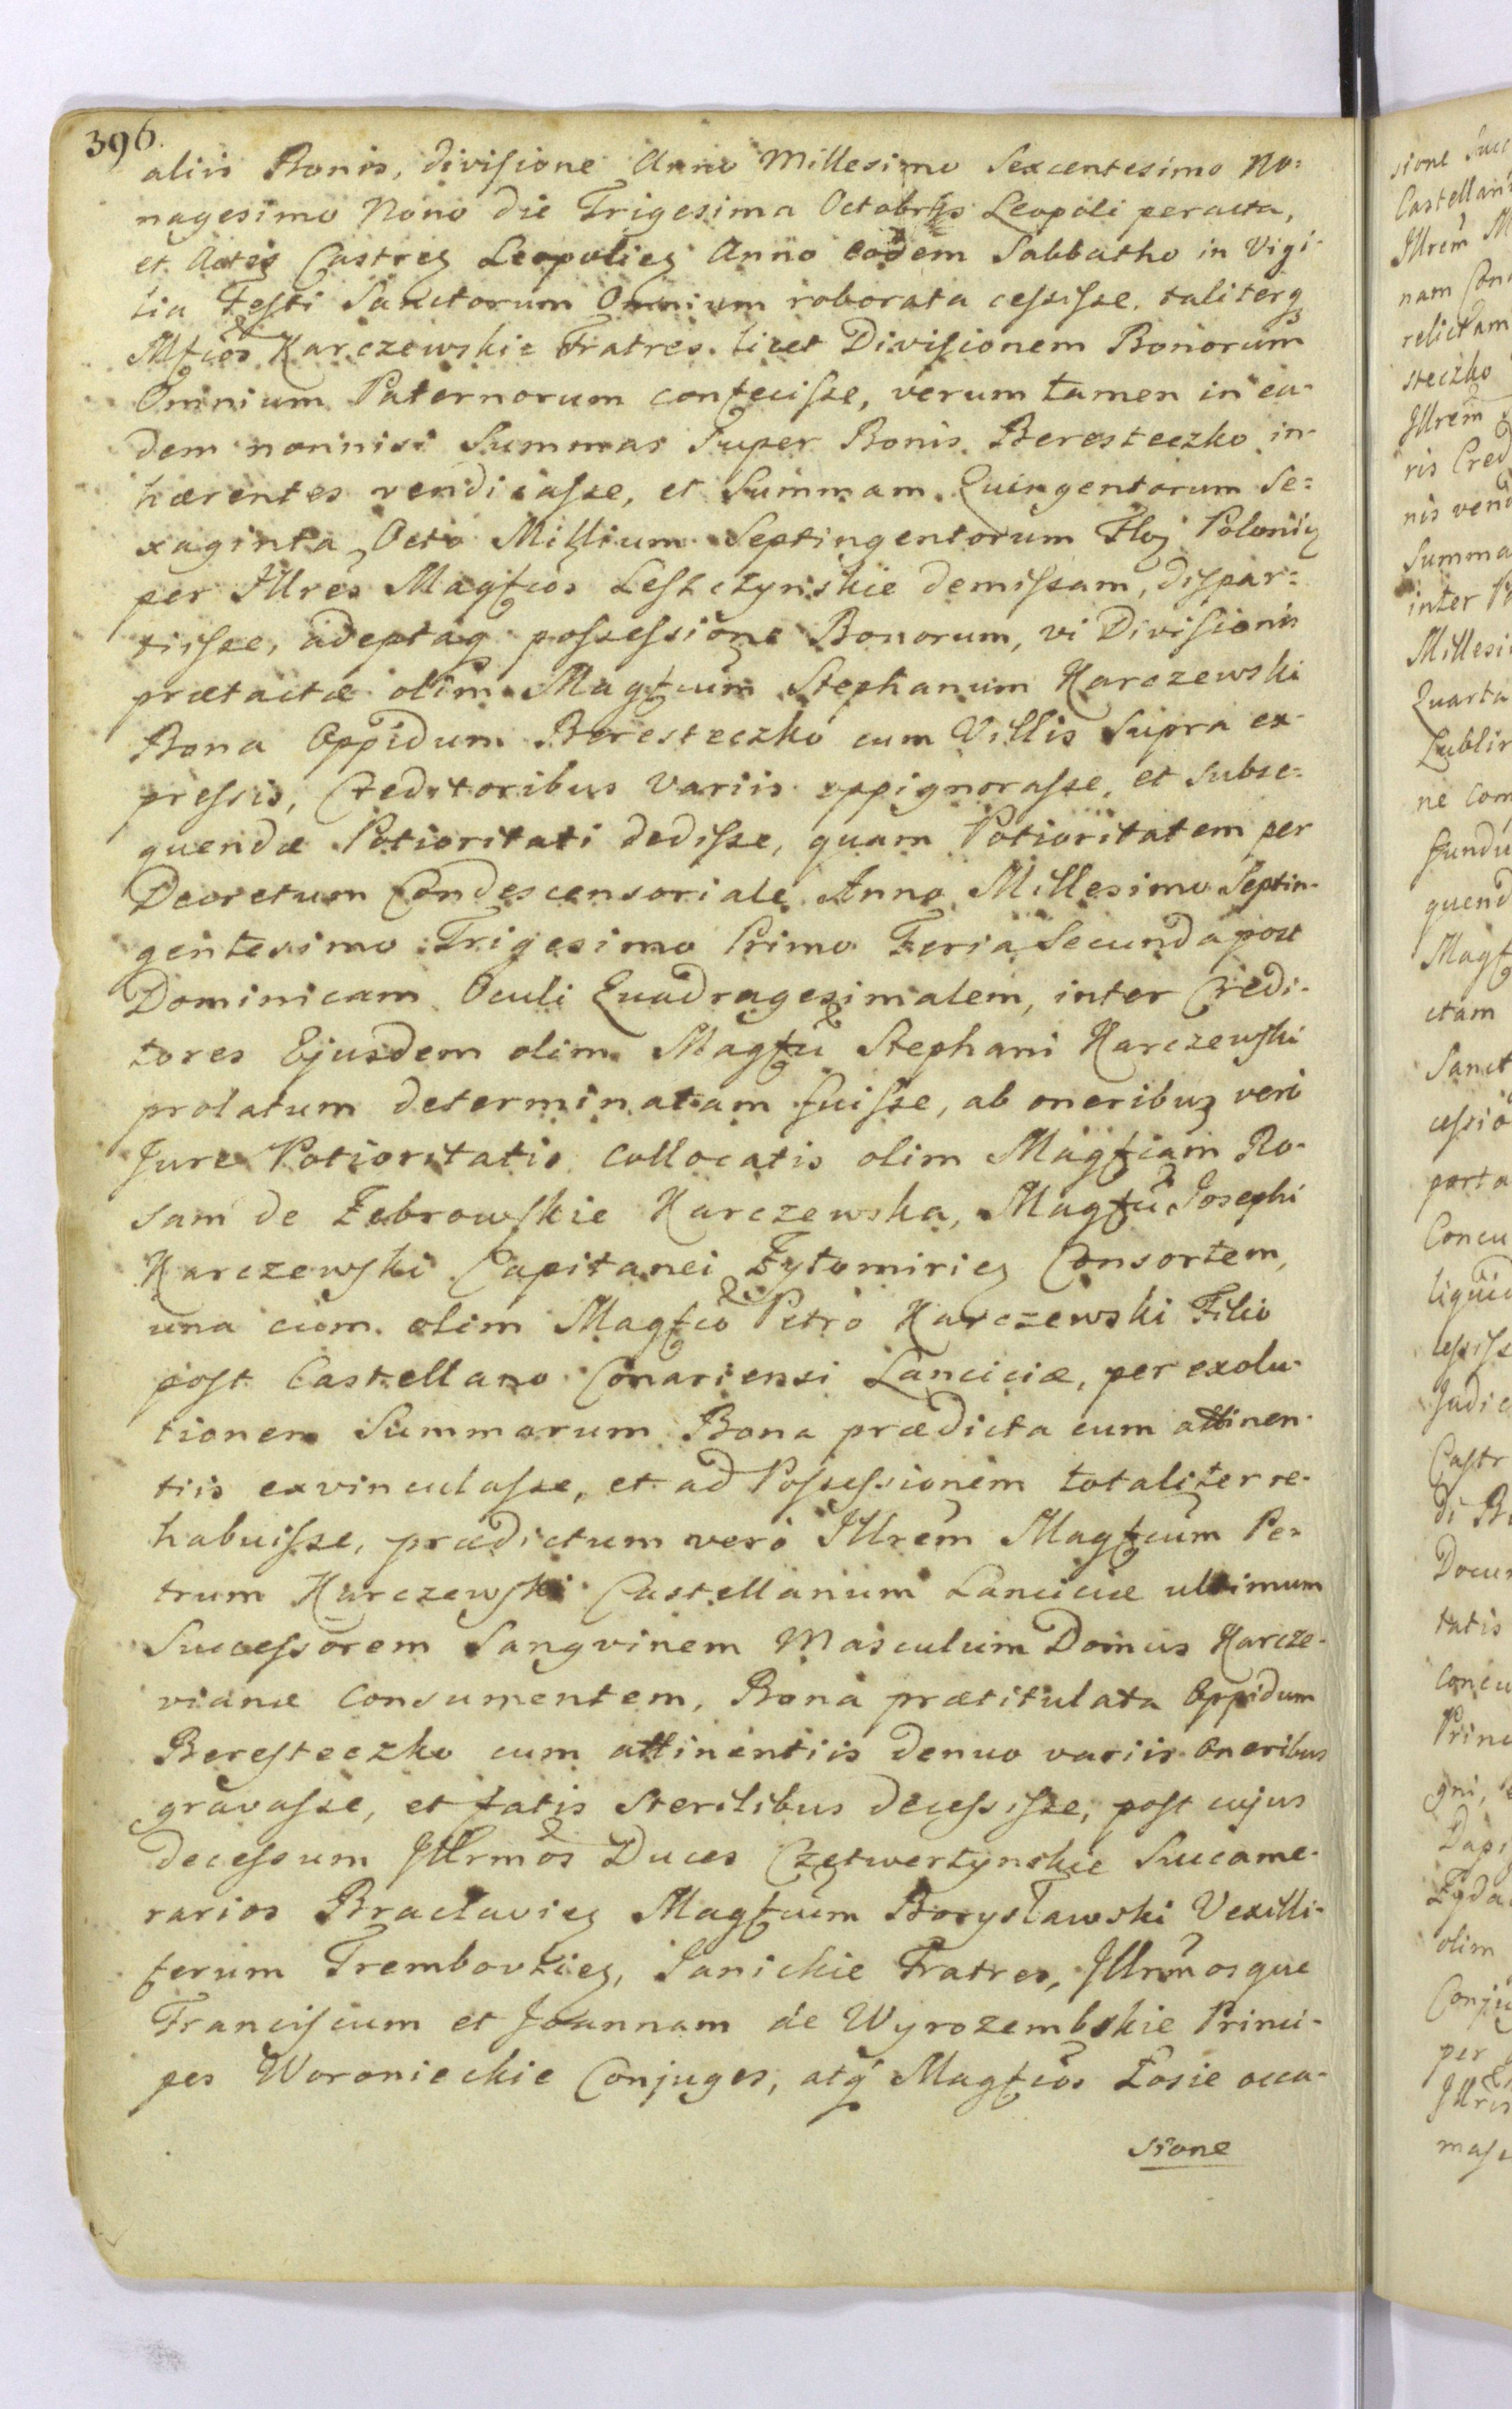 396.
aliis Bonis, divisione Anno Millesimo Sexcentesimo No=
nagesimo Nono die Trigesima Octobris Leopoli peracta,
et Actis Castreς Leopolieς Anno eodem Sabbatho in Vigi-
lia Festi Sanctorum Omnium roborata cessisse. taliterq
Mfcos Karczewskie Fratres. licet Divisionem Bonorum
Omnium Paternorum confecisse, verum tamen in ea-
dem nonnisi Summas super Bonis Beresteczko in-
hærentes vendicasse, et Summam Quingentorum Se=
xaginta Octo Millium Septingentorum Floς Poloniς
per Illres Magfcos Leszczynskie demissam, dispar=
tisse, adeptaq possessione Bonorum, vi Divisionis
prætactæ olim Magfcum Stephanum Karczewski
Bona Oppidum Beresteczko cum Villis supra ex-
pressis, Creditoribus variis oppignorasse, et subse=
quendæ Potioritati dedisse, quam Potioritatem per
Decretum Condescensoriale Anno Millesimo Septin-
gentesimo Trigesimo Primo Feria Secunda post
Dominicam Oculi Quadragesimalem, inter Credi-
tores Ejusdem olim Magfci Stephani Karczewski
prolatum determinatam fuisse, ab oneribus vero
Jure Potioritatis collocatis olim Magfcam Ro-
sam de Zebrowskie Karczewska, Magfci Josephi
Karczewski Capitanei Zytomirieς Consortem,
una cum olim Magfco Petro Karczewski Filio
post Castellano Conariensi Lanciciæ, per exolu-
tionem Summarum Bona prædicta cum attinen-
tiis exvinculasse, et ad Possessionem totaliter re-
habuisse, prædictum vero Illrem Magfcum Pe=
trum Karczewski Castellanum Lanciciæ ultimum
Successorem Sangvinem Masculum Domus Karcze-
vianæ consumentem, Bona prætitulata Oppidum
Beresteczko cum attinentiis denuo variis oneribus
gravasse, et fatis sterilibus decessisse, post cujus
decessum Illrmos Duces Czetwertynskie Succame-
rarios Braclavieς Magfcum Borysławski Vexilli-
ferum Trembovlieς, Janickie Fratres, Illrmosque
Franciscum et Joannam de Wyrozembskie Princi-
pes Woronieckie Conjuges, atq Magfcos Łosie occa-
sione
sione Succ
Castellan
Illrem M
relictam
steczko
Illrem
ris Cred
nis vend
Summa
inter
Millesi
Quarta
Lublin
ne com
fundu
quend
Magf
ctam
Sanct
cessio
porta
Concu
liquid
Judic
Castr
Docum
tatis
concu
Princ
olim
Conju
per
Illres